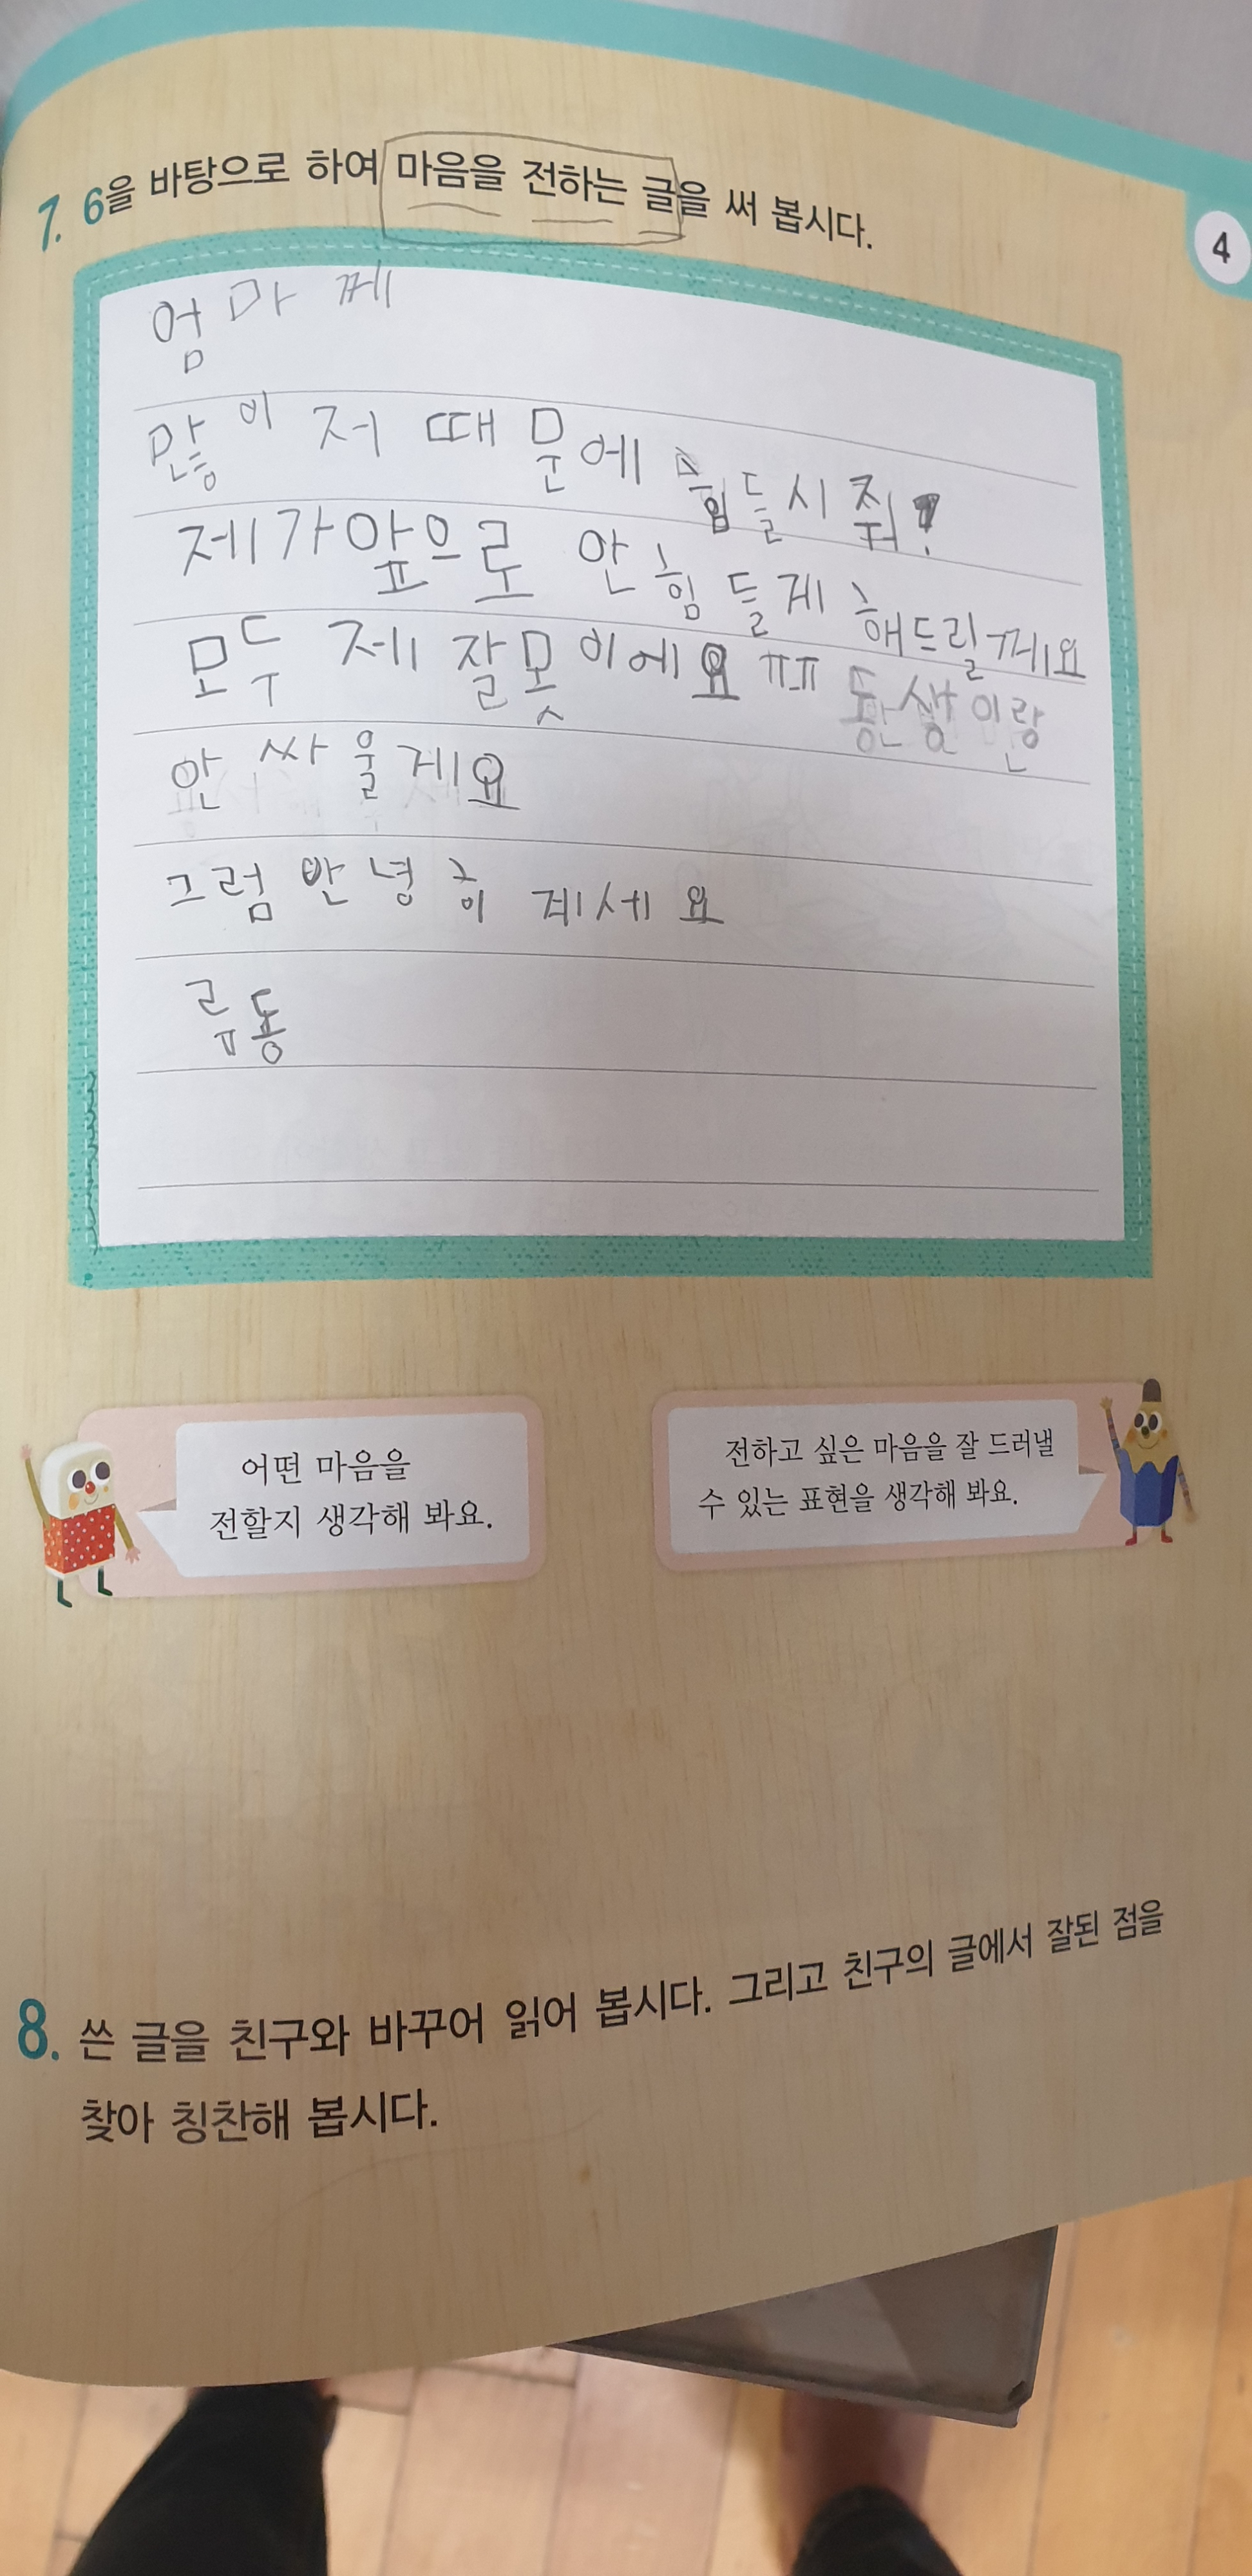 7. 6을 바탕으로 하여 마음을 전하는 글을 써 봅시다.
4
엄마께
많이 저 때문에 힘들시줘?
제가 앞으로 안 힘들게 해드릴께요
모두 제 잘못이에요 ㅠㅠ 동생이랑
안 싸울게요
그럼 안녕히 계세요
류동
어떤 마음을
전할지 생각해 봐요.
전하고 싶은 마음을 잘 드러낼
수 있는 표현을 생각해 봐요.
8. 쓴 글을 친구와 바꾸어 읽어 봅시다. 그리고 친구의 글에서 잘된 점을
찾아 칭찬해 봅시다.